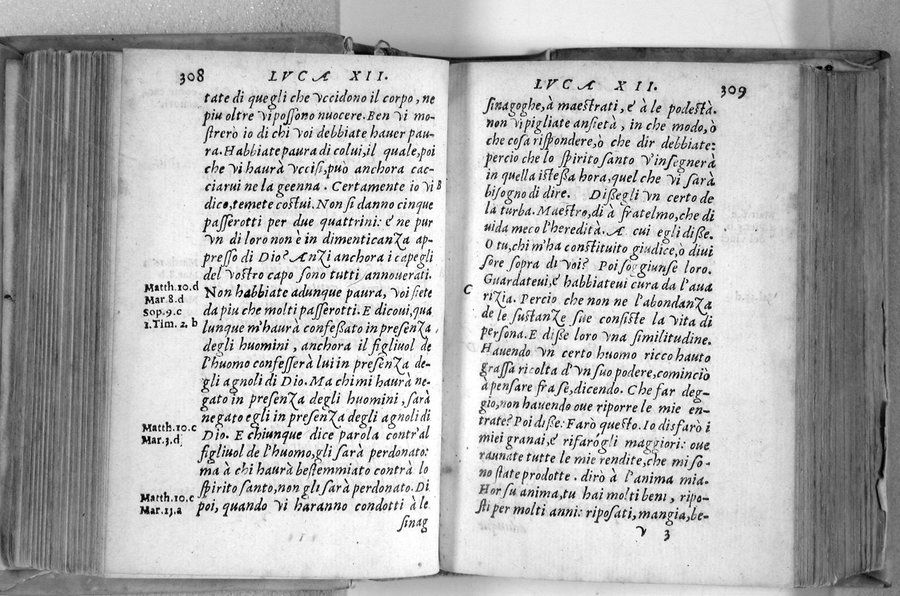 308
LVCÆ XII.
tate di quegli che vccidono il corpo, ne
piu oltre vi possono nuocere. Ben vi mo-
strerò io di chi voi debbiate hauer pau-
ra. Habbiate paura di colui, il quale, poi
che vi haurà vccisi, può anchora cac-
ciarui ne la geenna. Certamente io vi
B
dico, temete costui. Non si danno cinque
passerotti per due quattrini: è ne pur
vn di loro non è in dimenticanza ap-
presso di Dio? Anzi anchora i capegli
del vostro capo sono tutti annouerati.
Non habbiate adunque paura, voi siete
da piu che molti passerotti. E dicoui, qua
lunque m'haurà confessato in presenza
degli huomini, anchora il figliuol de
l'huomo confesserà lui in presenza de-
gli agnoli di Dio. Ma chi mi haurà ne-
gato in presenza degli huomini, sarà
negato egli in presenza degli agnoli di
Dio. E chiunque dice parola contr'al
figliuol de l'huomo, gli sarà perdonato:
ma à chi haurà bestemmiato contrà lo
spirito santo, non gli sarà perdonato. Di
poi, quando vi haranno condotti à le
sinag
Matth.10.d
Mar.8.d
Sop.9.c
2.Tim.2.b
Matth.10.c
Mar.3.d
Matth.10.c
Mar.13.a
LVCÆ XII.
309
sinagoghe, à maestrati, è à le podestà.
non vi pigliate ansietà, in che modo, ò
che cosa rispondere, ò che dir debbiate:
percio che lo spirito santo v'insegnerà
in quella istessa hora, quel che vi sarà
bisogno di dire. Dissegli vn certo de
la turba. Maestro, di à fratelmo, che di
uida meco l'heredità. Æ cui egli disse.
O tu, chi m'ha constituito giudice, ò diui
sore sopra di voi? Poi soggiunse loro.
Guardateui, è habbiateui cura da l'aua
C
rizia. Percio che non ne l'abondanza
de le sustanze sue consiste la vita di
persona. E disse loro vna similitudine.
Hauendo vn certo huomo ricco hauto
grassa ricolta d'vn suo podere, cominciò
à pensare fra se, dicendo. Che far deg-
gio, non hauendo oue riporre le mie en-
trate? Poi disse: Farò questo. Io disfarò i
miei granai, è rifarogli maggiori: oue
raunate tutte le mie rendite, che mi so-
no state prodotte. dirò à l'anima mia.
Hor su anima, tu hai molti beni, ripo-
sti per molti anni: riposati, mangia, be-
V 3